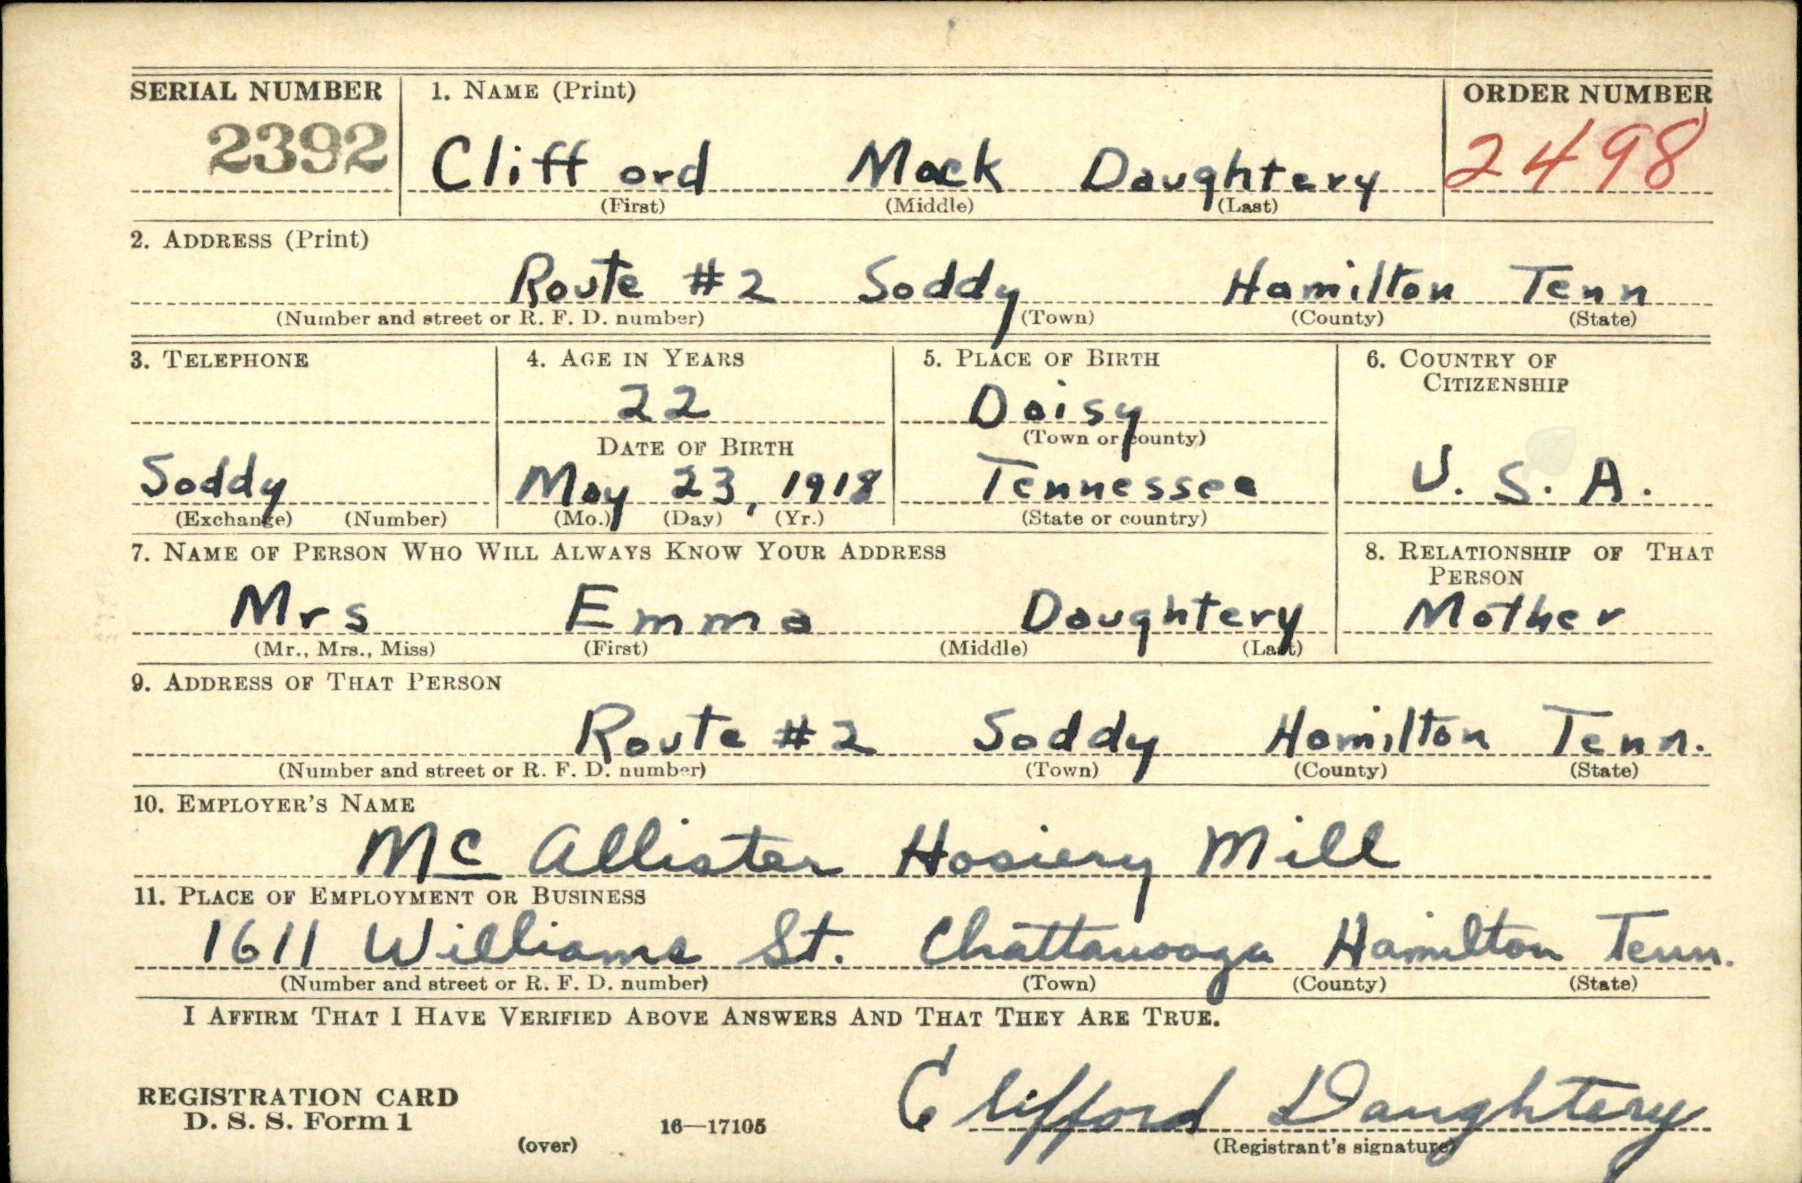 SERIAL NUMBER 1. NAME (Print) ORDER NUMBER
2392 Clifford Mack Daughtery 2498
(First) (Middle) (Last)
2. ADDRESS (Print)
Route #2 Soddy Hamilton Tenn
(Number and street or R. F. D. number) (Town) (County) (State)
3. TELEPHONE 4. AGE IN YEARS 5. PLACE OF BIRTH 6. COUNTRY OF
CITIZENSHIP
22 Daisy
DATE OF BIRTH (Town or county)
Soddy May 23, 1918 Tennessee U. S. A.
(Exchange) (Number) (Mo.) (Day) (Yr.) (State or country)
7. NAME OF PERSON WHO WILL ALWAYS KNOW YOUR ADDRESS 8. RELATIONSHIP OF THAT
PERSON
Mrs Emma Daughtery Mother
(Mr., Mrs., Miss) (First) (Middle) (Last)
9. ADDRESS OF THAT PERSON
Route #2 Soddy Hamilton Tenn.
(Number and street or R. F. D. number) (Town) (County) (State)
10. EMPLOYER'S NAME
Mc Allister Hosiery Mill
11. PLACE OF EMPLOYMENT OR BUSINESS
1611 Williams St. Chattanooga Hamilton Tenn.
(Number and street or R. F. D. number) (Town) (County) (State)
I AFFIRM THAT I HAVE VERIFIED ABOVE ANSWERS AND THAT THEY ARE TRUE.
Clifford Daughtery
REGISTRATION CARD
D. S. S. Form 1 16—17105
(over) (Registrant's signature)